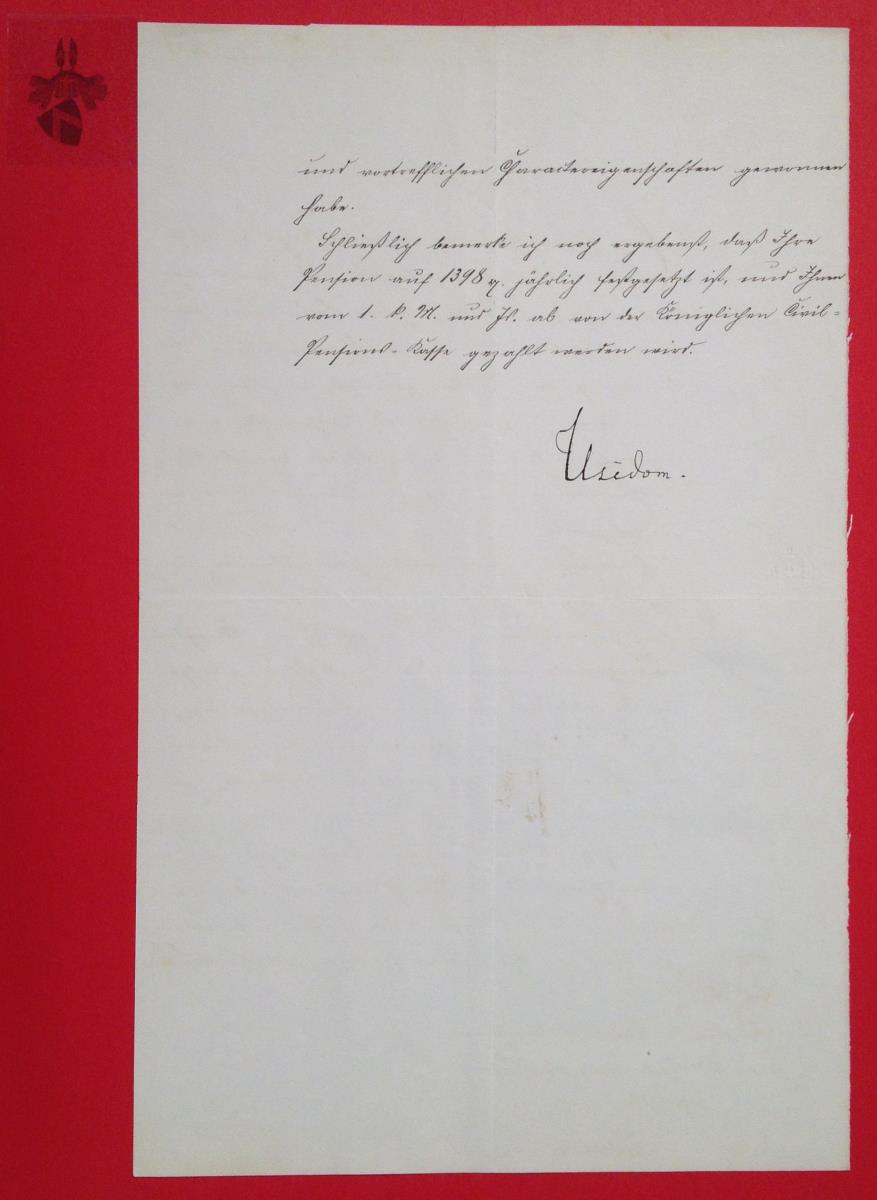 und vortrefflichen Charactereigenschaften gewonnen
habe.
Schließlich bemerke ich noch ergebenst, daß Ihre
Pension auf 1398 jährlich festgesetzt ist, und Ihnen
vom 1. k. M. und Js. ab von der Königlichen Civil-
Pensions-Kasse gezahlt werden wird.
Usedom.